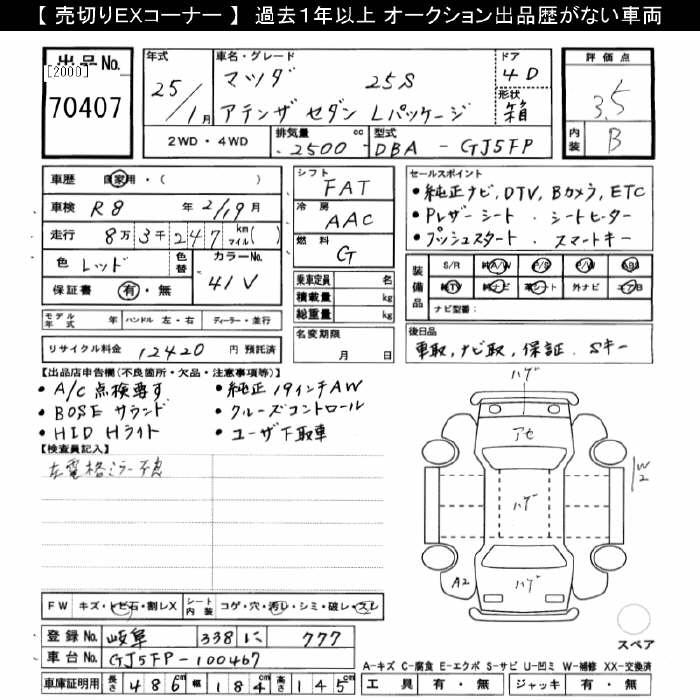 【 売切りEXコーナー 】 過去1年以上 オークション出品歴がない車両
出品No.
[2000]
70407
年式
25/1月
車名・グレード
マツダ 25S
アテンザ セダン Lパッケージ
ドア
4D
形状
箱
評価点
3.5
内装
B
2WD・4WD
排気量
2500 cc
型式
DBA - GJ5FP
車歴 自家用・( )
車検 R8 年 2/19月
走行 8万3千247 km マイル( )
色 レッド
色替
カラーNo.
41V
保証書 有・無
シフト
FAT
冷房
AAC
燃料
G
乗車定員 名
積載量 kg
総重量 kg
セールスポイント
・純正ナビ, DTV, Bカメラ, ETC
・Pレザーシート . シートヒーター
・プッシュスタート . スマートキー
装備品
S/R 純A/W P/S P/W ABS
純TV 純ナビ 革シート 外ナビ エアB
ナビ型番:
モデル年式 年 ハンドル 左・右 ディーラー・並行
名変期限
月 日
後日品
車取, ナビ取, 保証. Sキー
リサイクル料金 12420 円 預託済
【出品店申告欄(不良箇所・欠品・注意事項等)】
・A/C点検要す ・純正19インチAW
・BOSEサウンド ・クルーズコントロール
・HID Hライト ・ユーザ下取車
【検査員記入】
左電格ミラー不良
ハゲ
アセ
W2
ハゲ
A2
ハゲ
スペア
FW キズ・トビ石・割レX
シート内装 コゲ・穴・汚レ・シミ・破レ・スレ
登録No. 岐阜 338 に 777
車台No. GJ5FP-100467
A-キズ C-腐食 E-エクボ S-サビ U-凹ミ W-補修 XX-交換済
車庫証明用 長さ 486cm 幅 184cm 高さ 145cm
工具 有・無 ジャッキ 有・無